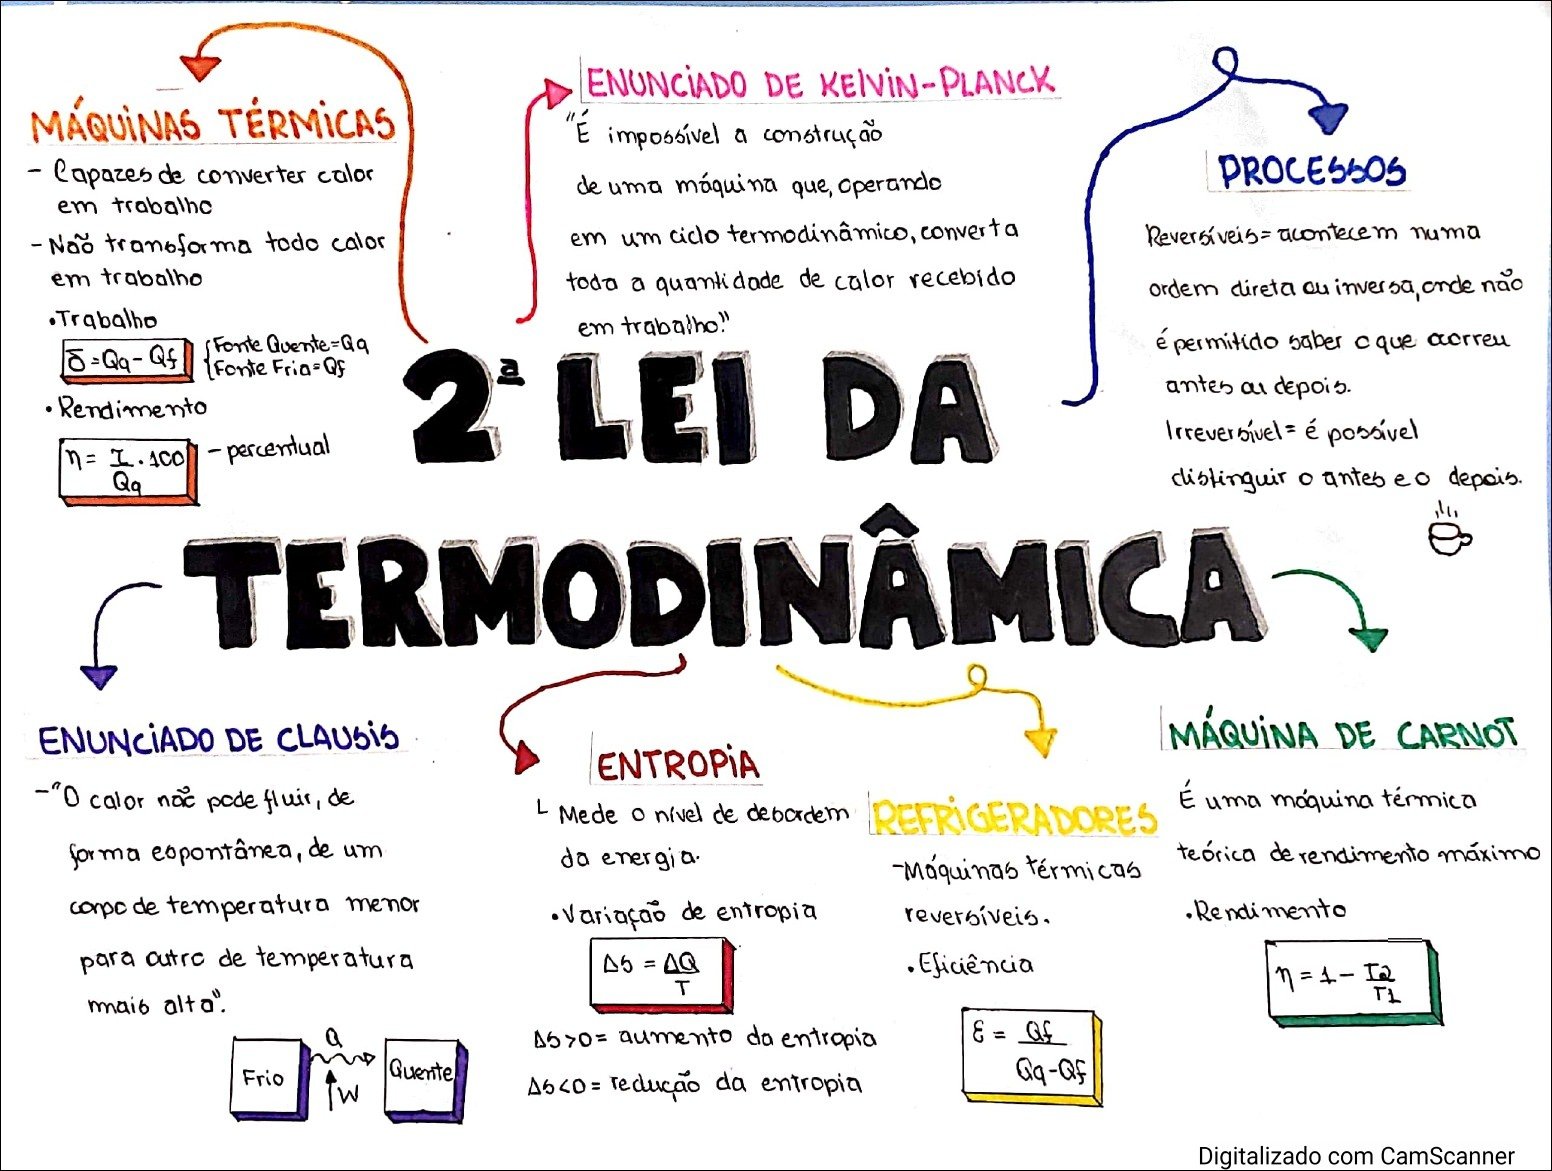 MÁQUINAS TÉRMICAS
- Capazes de converter calor
em trabalho
- Não transforma todo calor
em trabalho
•Trabalho
δ = Qq - Qf
{Fonte Quente=Qq
Fonte Fria=Qf
• Rendimento
η = I . 100
Qq
- percentual
ENUNCIADO DE KELVIN-PLANCK
"É impossível a construção
de uma máquina que, operando
em um ciclo termodinâmico, converta
toda a quantidade de calor recebido
em trabalho."
PROCESSOS
Reversíveis= acontecem numa
ordem direta ou inversa, onde não
é permitido saber o que ocorreu
antes ou depois.
Irreversível= é possível
distinguir o antes e o depois.
2ª LEI DA
TERMODINÂMICA
ENUNCIADO DE CLAUSIS
-"O calor não pode fluir, de
forma espontânea, de um
corpo de temperatura menor
para outro de temperatura
mais alta".
Frio
Q
W
Quente
ENTROPIA
Mede o nível de desordem
da energia.
•Variação de entropia
ΔS = ΔQ
T
ΔS>0= aumento da entropia
ΔS<0= redução da entropia
REFRIGERADORES
-Máquinas térmicas
reversíveis.
•Eficiência
ε = Qf
Qq-Qf
MÁQUINA DE CARNOT
É uma máquina térmica
teórica de rendimento máximo
•Rendimento
η = 1 - T2
T1
Digitalizado com CamScanner